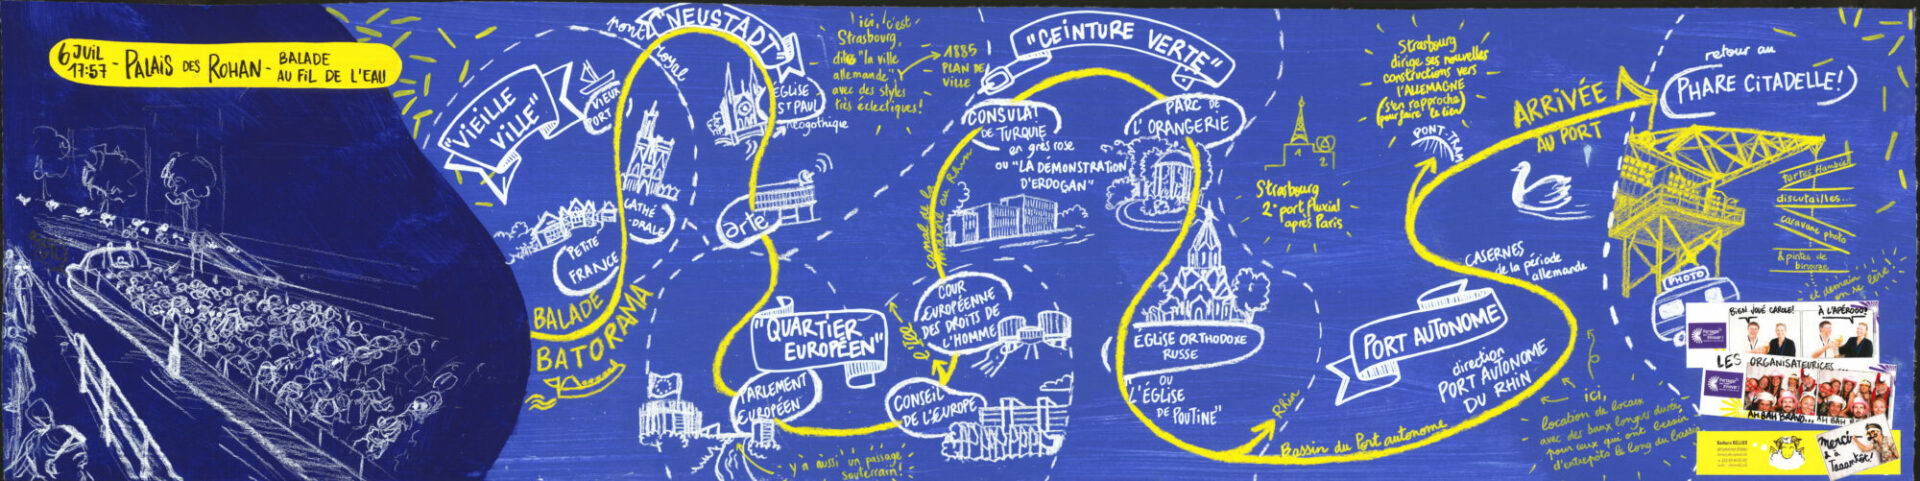 6 JUIL
17:57 - PALAIS DES ROHAN - BALADE
AU FIL DE L'EAU
"VIEILLE
VILLE"
VIEUX
PORT
PETITE
FRANCE
CATHÉ
-DRALE
BALADE
BATORAMA
pont royal
"NEUSTADT"
EGLISE
ST PAUL
néogothique
arte
ici, c'est
Strasbourg,
dite "la ville
allemande",
avec des styles
très éclectiques!
1885
PLAN DE
VILLE
"QUARTIER
EUROPÉEN"
PARLEMENT
EUROPÉEN
y'a aussi un passage
souterrain!
CONSEIL
DE L'EUROPE
COUR
EUROPÉENNE
DES DROITS DE
L'HOMME
canal de la
marne au Rhin
"CEINTURE VERTE"
CONSULAT
DE TURQUIE
en grès rose
ou "LA DÉMONSTRATION
D'ERDOGAN"
PARC DE
L'ORANGERIE
EGLISE ORTHODOXE
RUSSE
OU
"L'ÉGLISE
DE POUTINE"
Rhin
Strasbourg
2e port fluvial
après Paris
1
2
Strasbourg
dirige ses nouvelles
constructions vers
l'ALLEMAGNE
(s'en rapproche)
pour faire le lien
PONT-TRAM
Bassin du Port autonome
PORT AUTONOME
direction
PORT AUTONOME
DU RHIN
CASERNES
de la période
allemande
ici,
location de locaux
avec des baux longue durée
pour ceux qui ont besoin
d'entrepôts le long du bassin
ARRIVÉE
AU PORT
retour au
PHARE CITADELLE!
tartes flambées
discutailles...
caravane photo
& pintes de
binouze
et demain
on se lève!
PHOTO
BIEN JOUÉ CAROLE!
À L'APÉROOO!
LES ORGANISATEURICES...
AH BAH BRAVO...
merci
& à
Taaantôt!